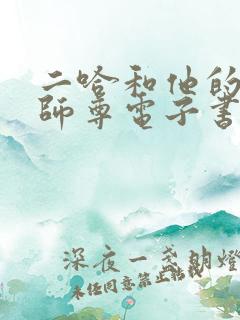 二哈和他的
師尊電子書
深夜一盏明燈
未任同意禁止转载